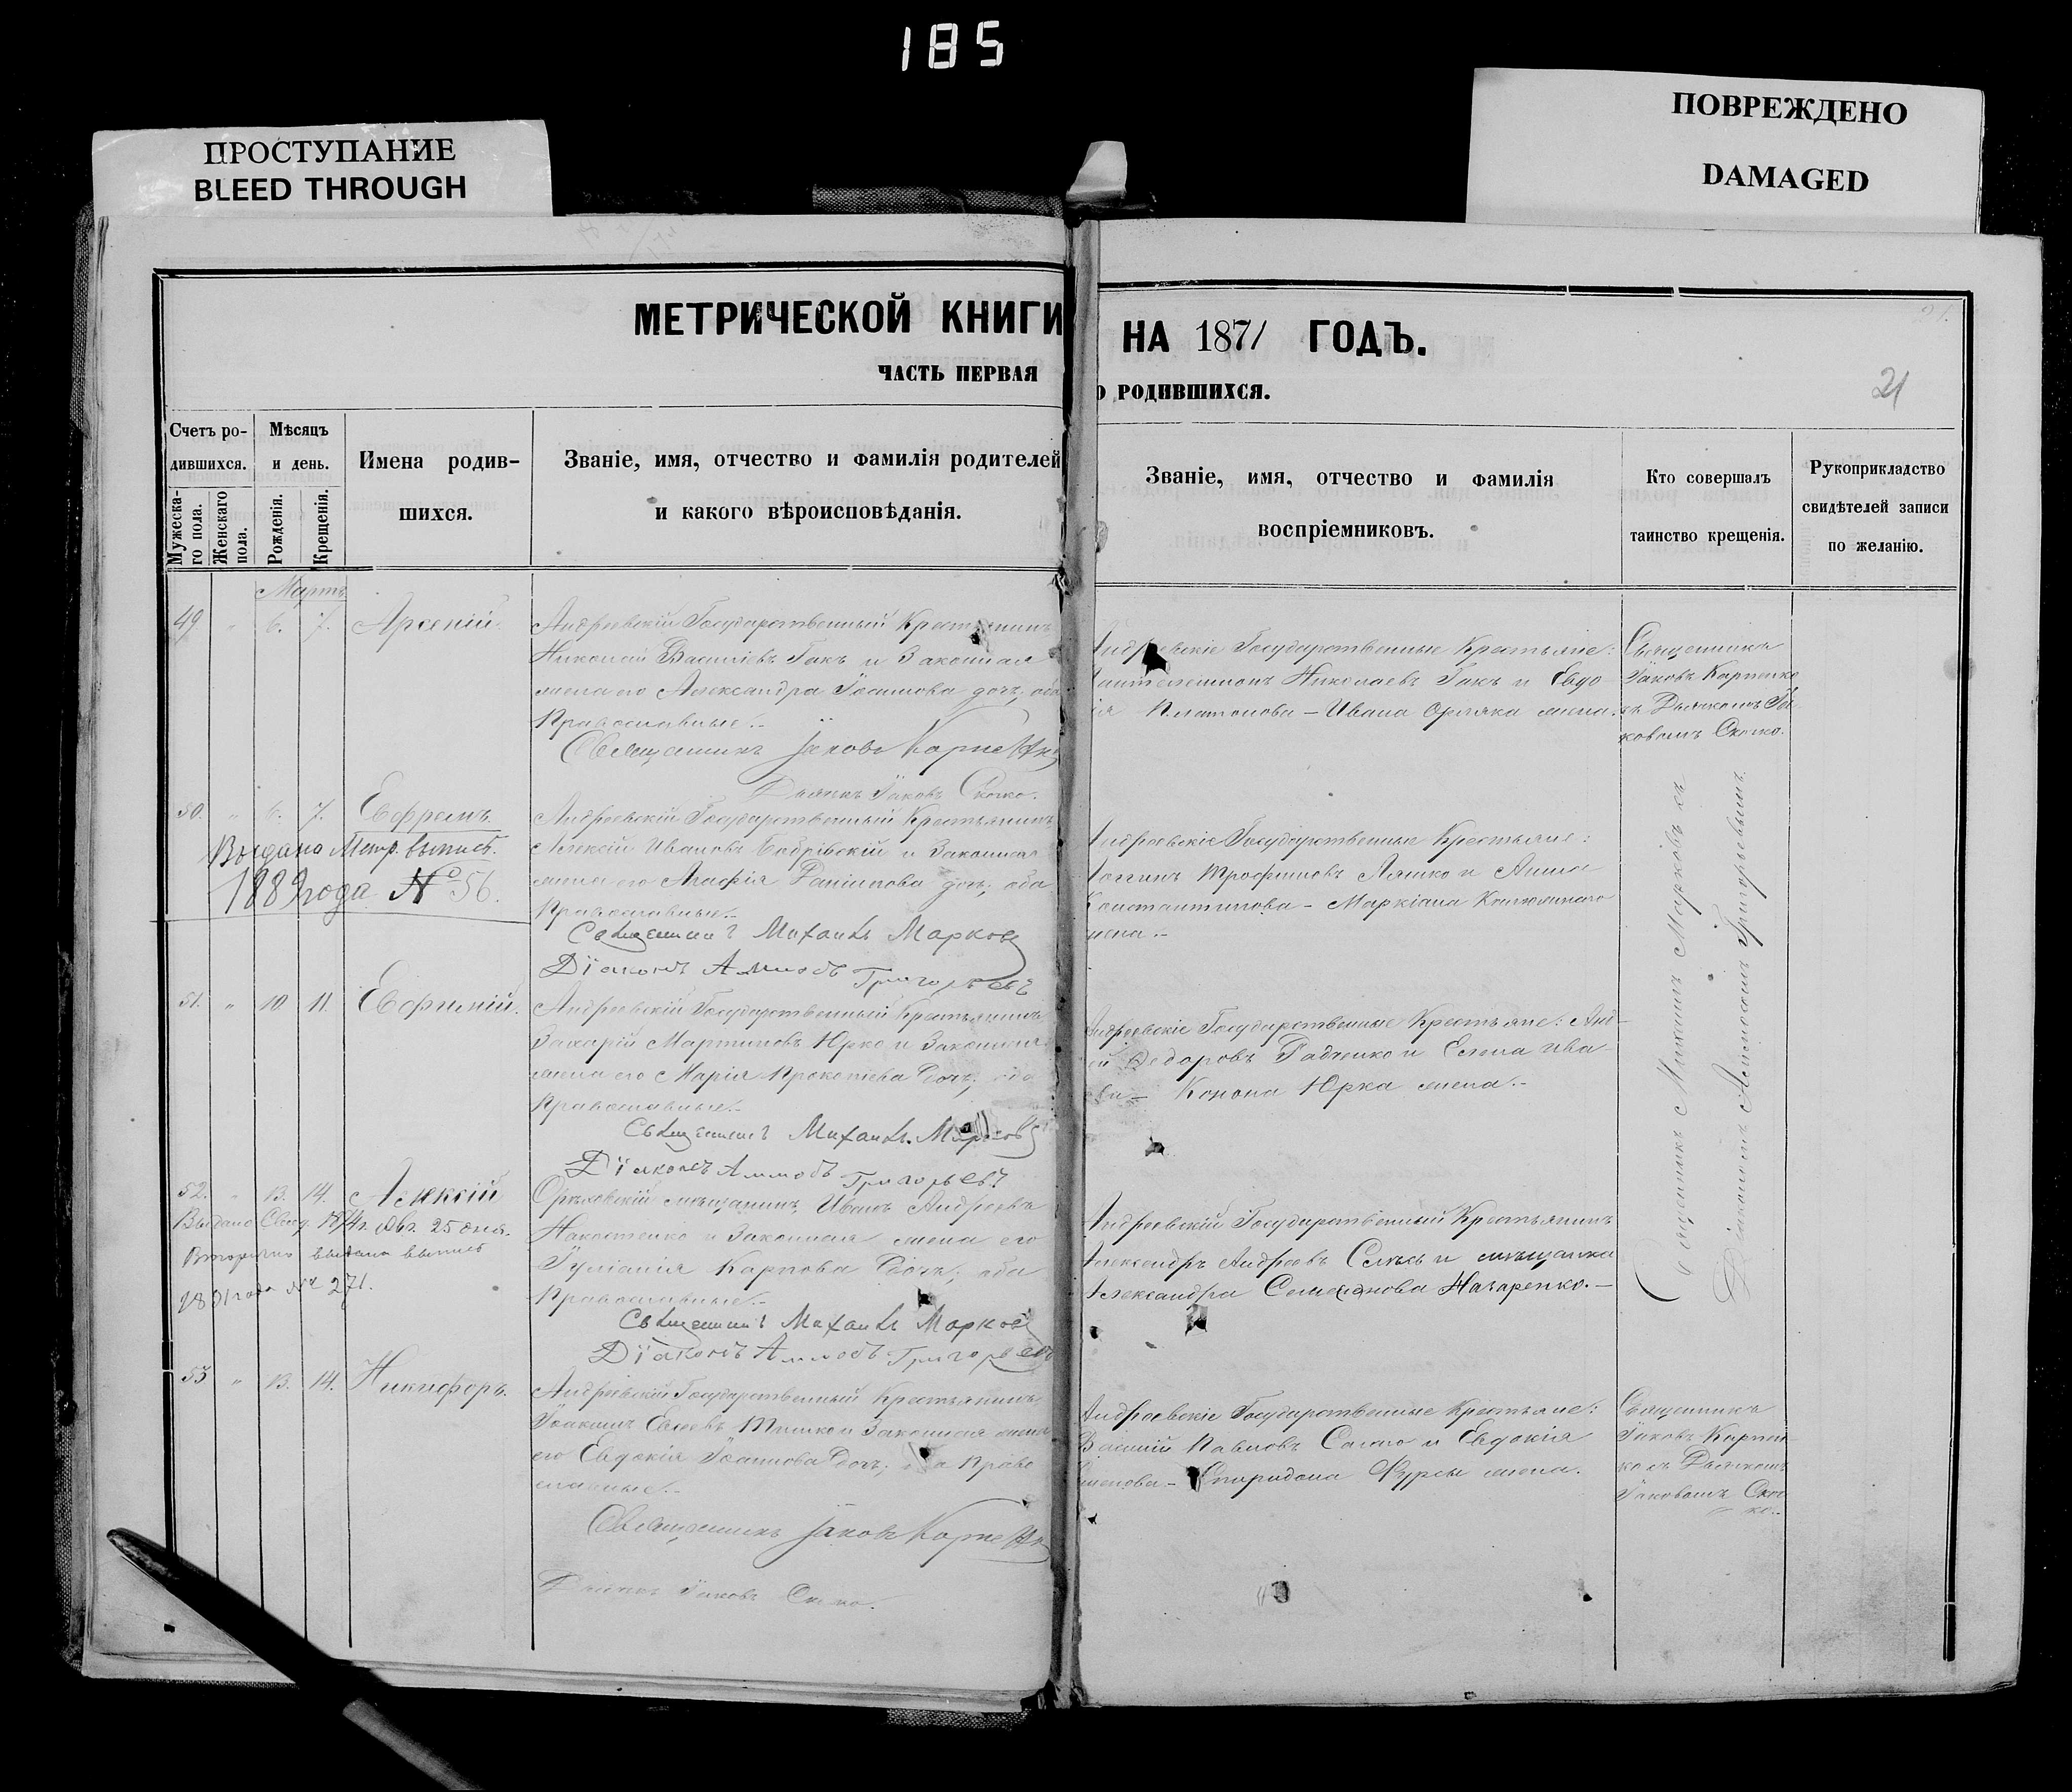 185
ПРОСТУПАНИЕ
BLEED THROUGH
ПОВРЕЖДЕНО
DAMAGED
МЕТРИЧЕСКОЙ КНИГИ НА 1871 ГОДЪ.
ЧАСТЬ ПЕРВАЯ О РОДИВШИХСЯ.
21
Счетъ ро-
дившихся.
Мужеска-
го пола.
Женскаго
пола.
Мѣсяцъ
и день.
Рожденія.
Крещенія.
Имена родив-
шихся.
Званіе, имя, отчество и фамилія родителей
и какого вѣроисповѣданія.
Званіе, имя, отчество и фамилія
воспріемниковъ.
Кто совершалъ
таинство крещенія.
Рукоприкладство
свидѣтелей записи
по желанію.
Мартъ
49 " 6. 7. Арсеній.
Андреевскій Государственный Крестьянинъ
Николай Васильевъ Гакъ и Законная
жена его Александра Іоаннова дочь, оба
Православные.-
Священникъ Іаковъ Карпенко
Дьячокъ Іаковъ Скочко.
Андреевскіе Государственные Крестьяне:
Пантелеимонъ Николаевъ Гакъ и Евдо
Платонова - Ивана Орляка жена.
Священникъ
Іаковъ Карпенко
съ Дьячкомъ Іа
ковомъ Скочко.
50. " 6. 7. Ефремъ.
Выдана Метр. выпись.
1889 года № 56.
Андреевскій Государственный Крестьянинъ
Алексій Ивановъ и Законная
жена его Агафія дочь; оба
Православные.-
Священникъ Михаилъ Марковъ
Діаконъ Григорьевъ
Андреевскіе Государственные Крестьяне:
Логгинъ Трофимовъ Ляшко и Анна
Константинова - Маркіана
жена.-
51. " 10 11. Евфимій.
Андреевскій Государственный Крестьянинъ
Захарій Мартиновъ Юрко и Законная
жена его Марія Прокопіева дочь; оба
Православные.-
Священникъ Михаилъ Марковъ
Діаконъ Григорьевъ
Андреевскіе Государственные Крестьяне: Анд-
ей Федоровъ Радченко и Елена Ива-
ова - Конона Юрка жена.-
52. " 13. 14. Алексій
Выдано Свид. 1874 г. Авг. 25 дня.
Вторично выдана выпись
1891 года № 271.
Орѣховскій мѣщанинъ Иванъ Андреевъ
и Законная жена его
Іуліанія Карпова дочь; оба
Православные.-
Священникъ Михаилъ Марковъ
Діаконъ Григорьевъ
Андреевскій Государственный Крестьянинъ
Александръ Андреевъ и мѣщанка
Александра Назаренко.-
Священникъ Михаилъ Марковъ съ
Діакономъ Григорьевымъ.
53 " 13. 14. Никифоръ.
Андреевскій Государственный Крестьянинъ
Іоакимъ Евсеевъ и Законная жена
его Евдокія Іоаннова дочь; оба Право
славные.-
Священникъ Іаковъ Карпенко
Дьячокъ Іаковъ Скочко.
Андреевскіе Государственные Крестьяне:
Василій Павловъ и Евдокія
Спиридона Фурсы жена.
Священникъ
Іаковъ Карпен-
ко съ Дьячкомъ
Іаковомъ Скоч
ко.-